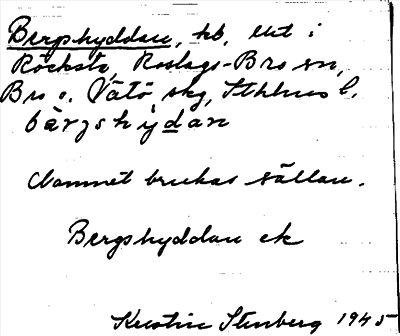 Bergshyddan, hb, utt i
Röcksta, Roslags-Bro sn,
Bro o. Vätö skg, Sthlms l.
bärgshỳdan
Namnet brukas sällan.
Bergshyddan ek
Kerstin Stenberg 1945